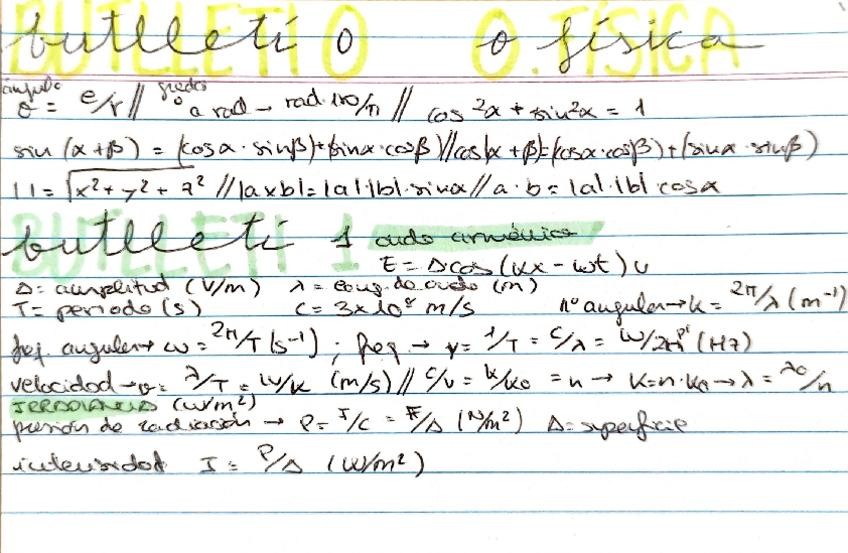 butlletí 0 o física
ángulo θ = e/r // grados ° a rad → rad·180/π // cos²α + sin²α = 1
sin (α+β) = (cosα · sinβ)+(sinα·cosβ) // cos(α + β)=(cosα·cosβ)+(sinα·sinβ)
| | = √x² + y² + z² // |a x b| = |a|·|b|·sinα // a · b = |a|·|b|·cosα
butlletí 1 onda armónica
E = A cos (kx - wt) u
A = amplitud (V/m) λ = long. de onda (m)
T = periodo (s) c = 3x10⁸ m/s nº angular → k = 2π/λ (m⁻¹)
freq. angular → ω = 2π/T (s⁻¹) ; freq → ν = 1/T = c/λ = w/2π (Hz)
velocidad → v = λ/T = w/k (m/s) // c/v = k/k₀ = n → k = n·k₀ → λ = λ₀/n
IRRADIANCIA (W/m²)
presión de radiación → P = I/c = F/A (N/m²) A = superficie
intensidad I = P/A (W/m²)